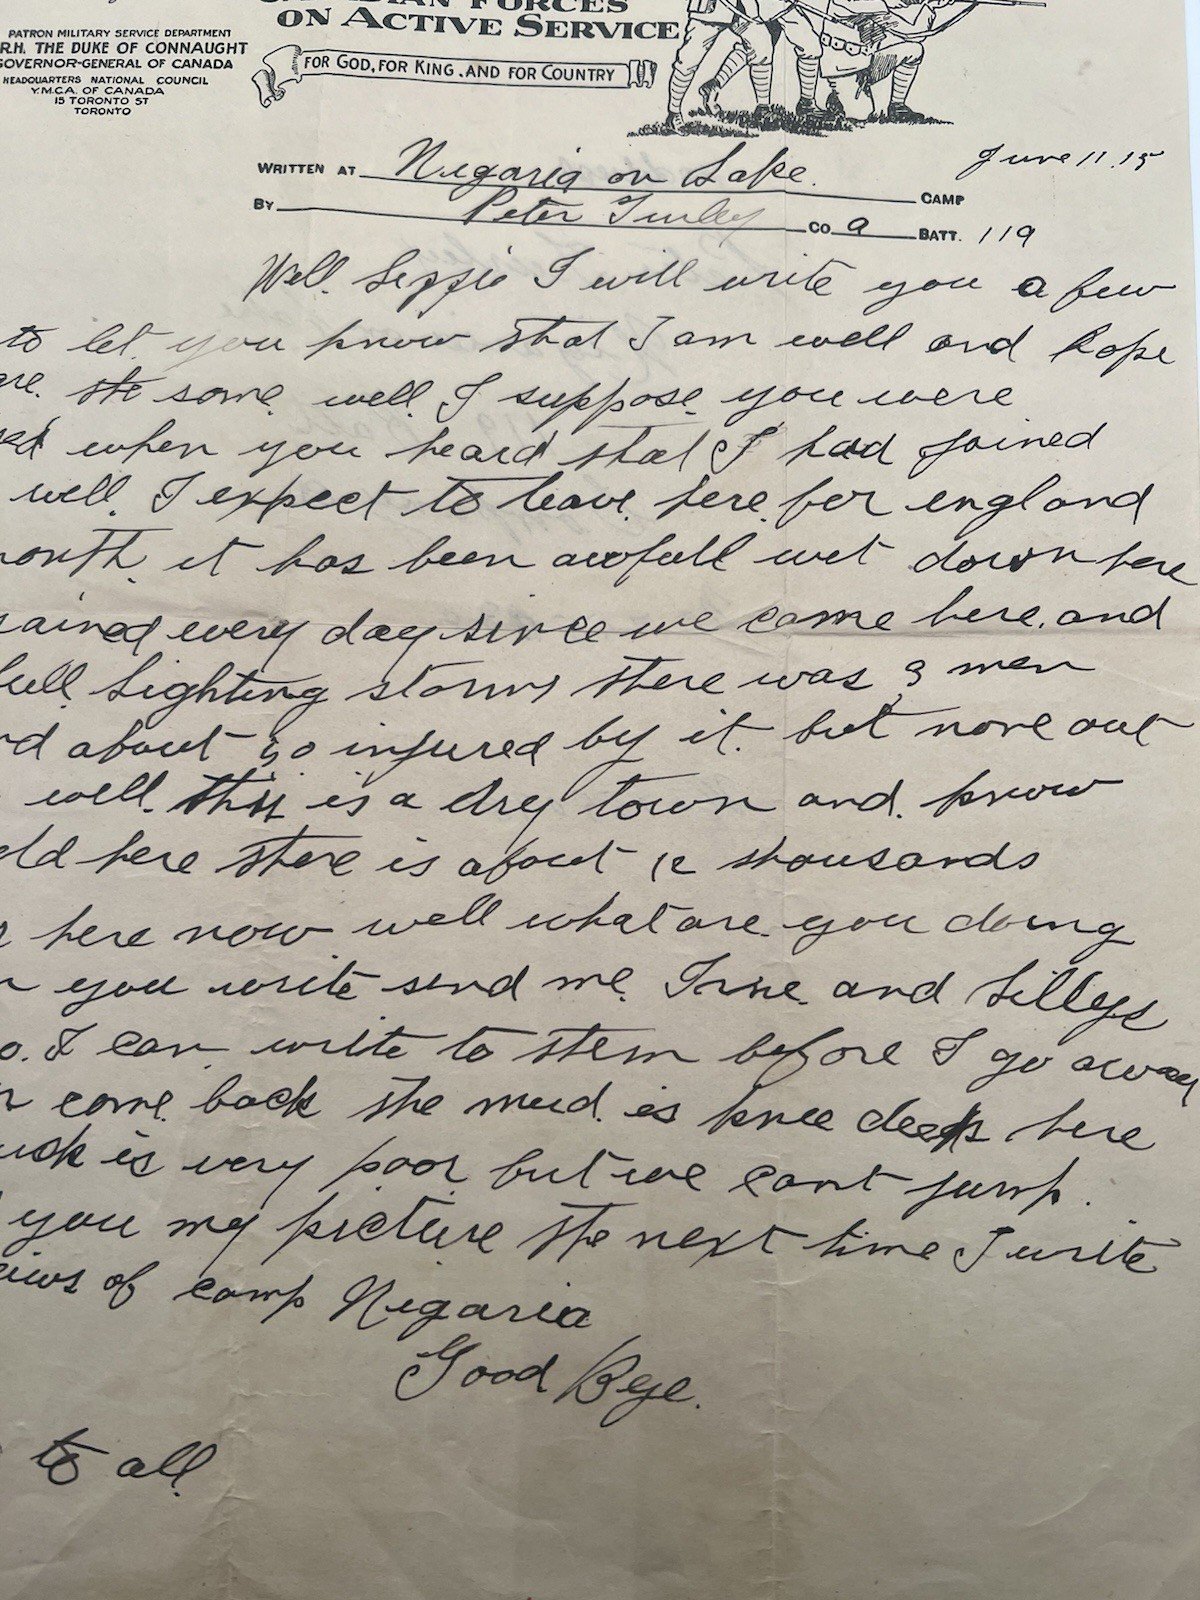 ON ACTIVE SERVICE
FOR GOD, FOR KING, AND FOR COUNTRY
PATRON MILITARY SERVICE DEPARTMENT
R.H. THE DUKE OF CONNAUGHT
GOVERNOR-GENERAL OF CANADA
HEADQUARTERS NATIONAL COUNCIL
Y.M.C.A. OF CANADA
15 TORONTO ST
TORONTO
June 11. 15
WRITTEN AT Nigaria on Lake. CAMP
BY Peter Turley CO a BATT. 119
Well. I will write you a few
to let you know that I am well and hope
the same. well. I suppose you were
when you heard that I had joined
well. I expect to leave here for england
it has been awfull wet down here
rained every day since we came here. and
Lighting storms there was 3 men
about injured by it. but none out
well. this is a dry town and. know
here there is about 12 thousands
here now well what are you doing
you write send me. Irine. and Lillys
I can write to them before I go away
come back the mud. is knee deep here
is very poor but we cant jump.
you my picture the next time I write
of camp Nigaria
Good Bye.
to all